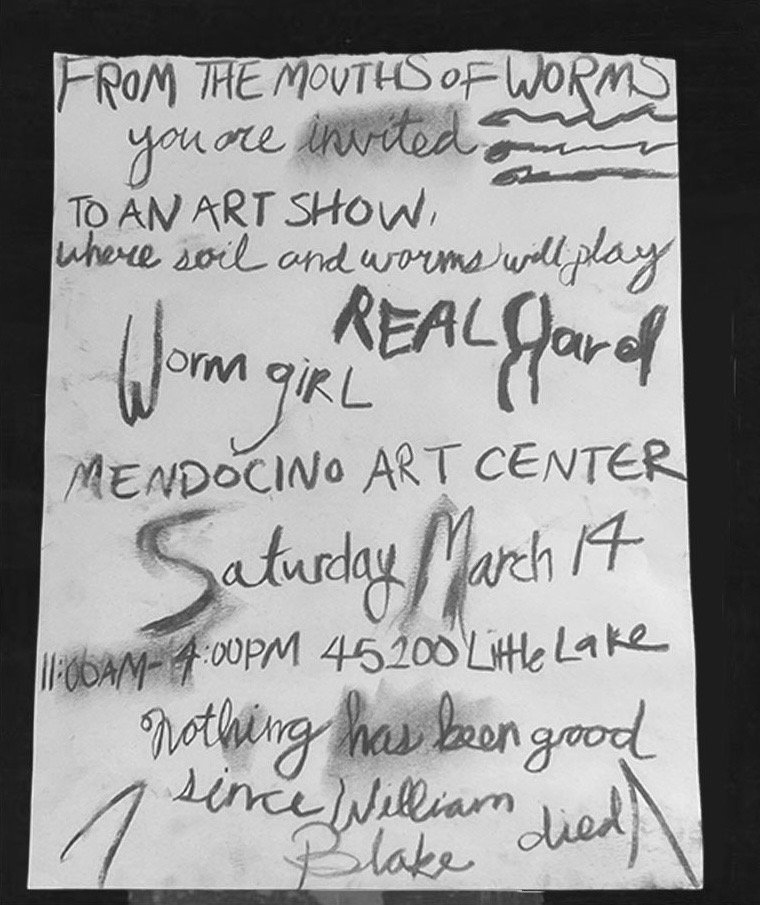 FROM THE MOUTHS OF WORMS
you are invited
TO AN ART SHOW,
where soil and worms will play
REAL Hard
Worm giRL
MENDOCINO ART CENTER
Saturday March 14
11:00AM-4:00PM 45200 Little Lake
nothing has been good
since William died
Blake